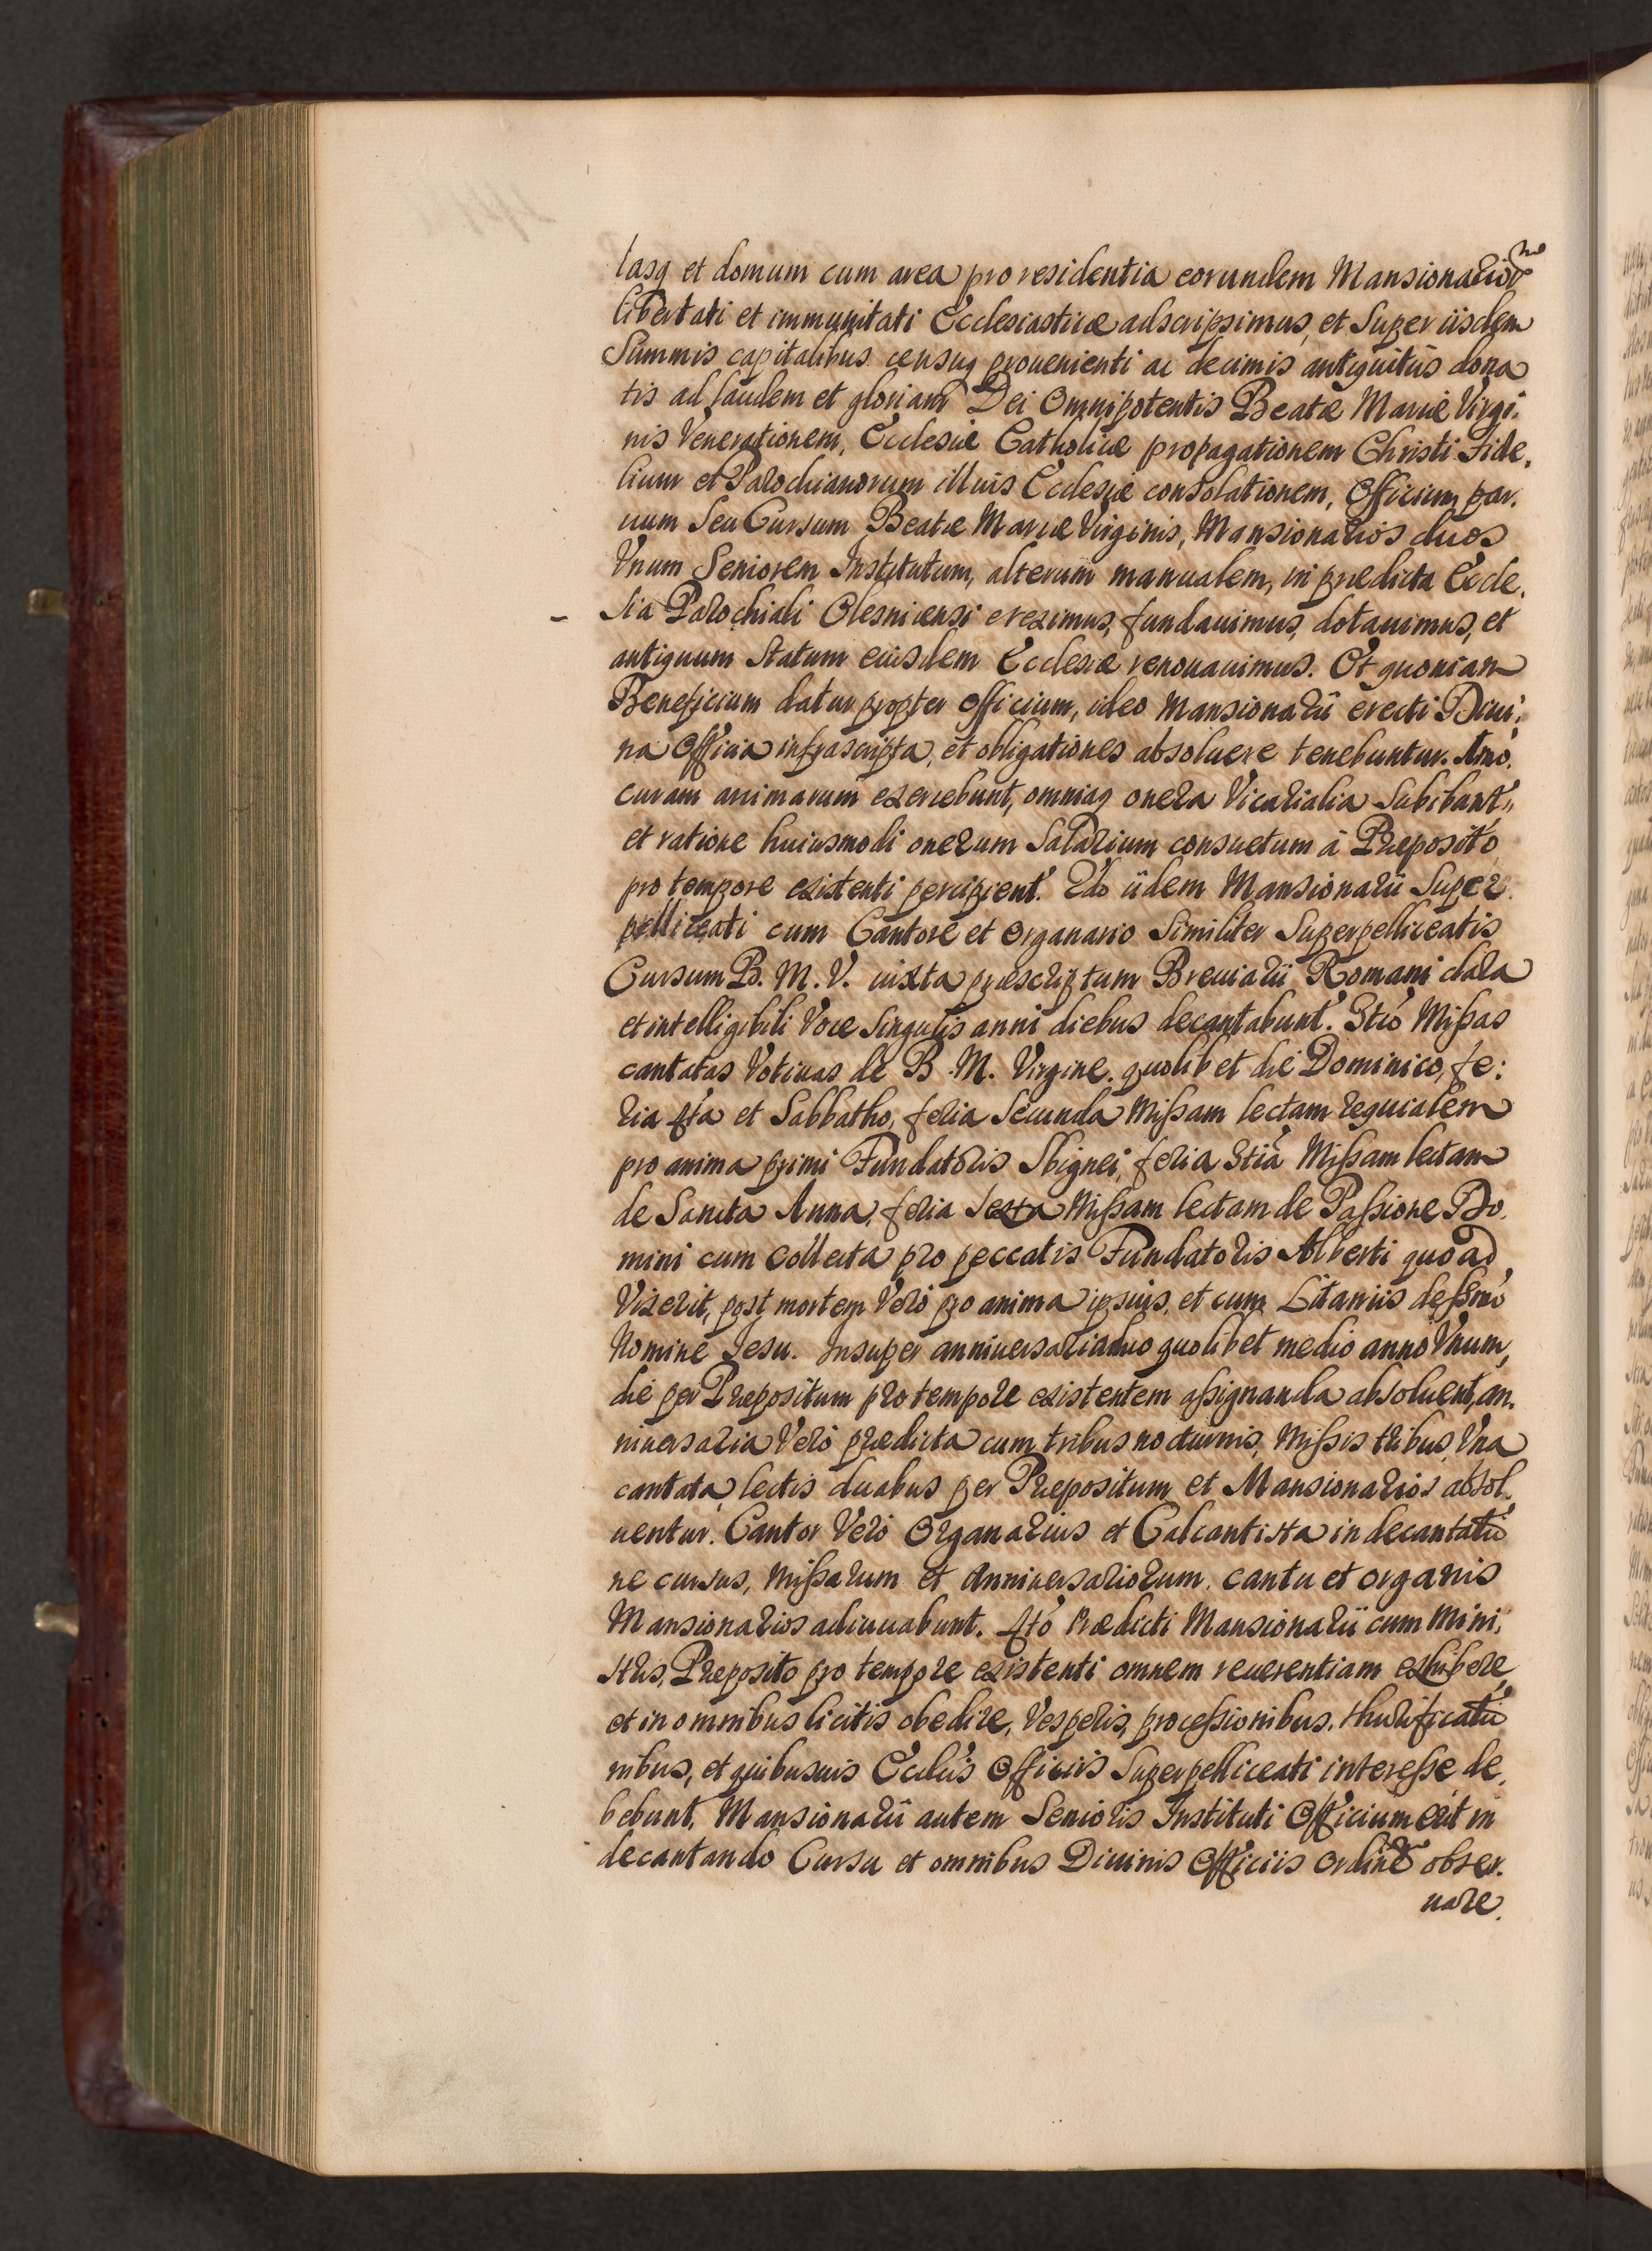 lasq et domum cum area pro residentia eorundem Mansionario
libertati et immunitati Ecclesiasticæ adscripsimus, et Super iisdem
Summis capitalibus censuq prouenienti ac decimis antiquitùs dona
tis ad laudem et gloriam Dei Omnipotentis Beatæ Mariæ Virgi,
nis Venerationem, Ecclesiæ Catholicæ propagationem Christi Fide,
lium et Parochianorum illuis Ecclesiæ consolationem, Officium par,
uum Seu Cursum Beatæ Mariæ Virginis, Mansionarios duos
Vnum Seniorem Institutum, alterum manualem, in prædicta Eccle,
sia Parochiali Olesnicensi ereximus, fundauimus, dotauimus, et
antiquum Statum eiusdem Ecclesiæ renouauimus. Et quoniam
Beneficium datur propter Officium, ideo Mansionarii erecti Diui,
na Officia infrascripta, et obligationes absoluere tenebuntur. Imò,
curam animarum exercebunt, omniaq onera Vicarialia Subibant,,
et ratione huiusmodi onerum Salarium consuetum à Præposito
pro tempore existenti percipient. 2do iidem Mansionarii Super
pelliceati cum Cantore et Organario Similiter Superpelliceatis
Cursum B. M. V. iuxta præscriptum Breuiarii Romani clara
et intelligibili Voce Singulis anni diebus decantabunt. 3tiò Missas
cantatas Votiuas de B. M. Virgine. quolibet die Dominico, fe:
ria 4ta et Sabbatho, feria Secunda Missam lectam requialem
pro anima primi Fundatoris Sbignei, feria 3tià Missam lectam
de Sancta Anna, feria Sexta Missam lectam de Passione Do,
mini cum collecta pro peccatis Fundatoris Alberti quoad
Vixerit, post mortem Verò pro anima ipsius, et cum Litaniis de SSmò
Nomine Jesu. Insuper anniuersaria duo quolibet medio anno Vnum,
die per Præpositum pro tempore existentem assignanda absoluent, an,
niuersaria Verò prædicta cum tribus nocturnis, Missis tribus, Vna
cantata, lectis duabus per Præpositum et Mansionarios absol,
uentur. Cantor Verò Organarius et Calcantista in decantatio
ne cursus, Missarum et Anniuersariorum, cantu et organis
Mansionarios adiuuabunt. 4tò Prædicti Mansionarii cum Mini,
stris, Præposito pro tempore existenti omnem reuerentiam exhibere,
et in omnibus licitis obedire, Vesperis, processionibus, thurificatio
nibus, et quibusuis Ecclis Officiis Superpelliceati interesse de,
bebunt. Mansionarii autem Senioris Instituti Officium erit in
decantando Cursu et omnibus Diuinis Officiis ordine obser,
uare.